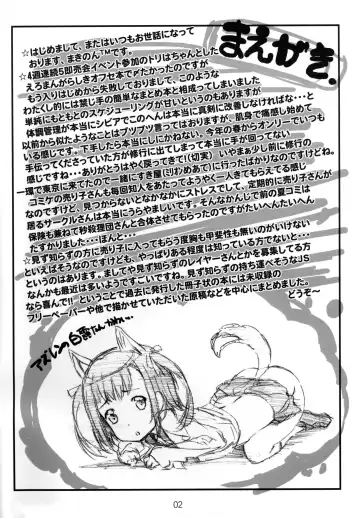 まえがき.
☆はじめまして、またはいつもお世話になって
おります、まきのん™です。
☆4週連続5即売会イベント参加のトリはちゃんとした
えろまんがらしきオフセ本で〆たかったのですが
もう入りはじめから失敗しており本として、このような
わたくし的には禁じ手の簡単なまとめ本と相成ってしまいました
単純にもともとのスケジューリングが甘いというのもありますが
体調管理がホントにシビアでこのへんは本当に真剣に改善しなければな…と
以前から似たようなことはブツブツ言っておりますが、肌身で痛感し始めて
いる感じです。下手したら本当にしにかねない。今年の春からずーっと
手伝ってくださっていた方が修行に出てしまって本当に手が回ってない
感じですね…ありがとうはやく戻ってきて(切実) いやまぁ少し前に修行の
一環で東京に来てたので一緒にすき屋(割めあて)に行ったばかりなのですけどね。
コミケの売り子さんも毎回知人をあたってようやく一人きてもらえてる感じ
なのですけど、見つからないとなかなかにストレスでして、定期的に売り子さんが
居るサークルさんは本当にうらやましいです。そんなかんじで前の夏コミは
保険も兼ねて秒殺捜団さんと合体させてもらったのですがたいへんたいへん
たすかりました…ほんと…
☆見ず知らずの方に売り子に入ってもらう度胸も甲斐性も無いのがいけない
といえばそうなのですけど、やっぱりある程度は知っている方でないと…
というのはあります。ましてや見ず知らずのレイヤーさんとかを募集してる方
なんかも最近は多いようですごいですね。見ず知らずの持ち運べそうなJS
なら喜んで!! ということで過去に発行した冊子状の本には未収録の
フリーペーパーや他で描かせていただいた原稿などを中心にまとめました。
どうぞ〜
アズレンの白露たんかわい…
02